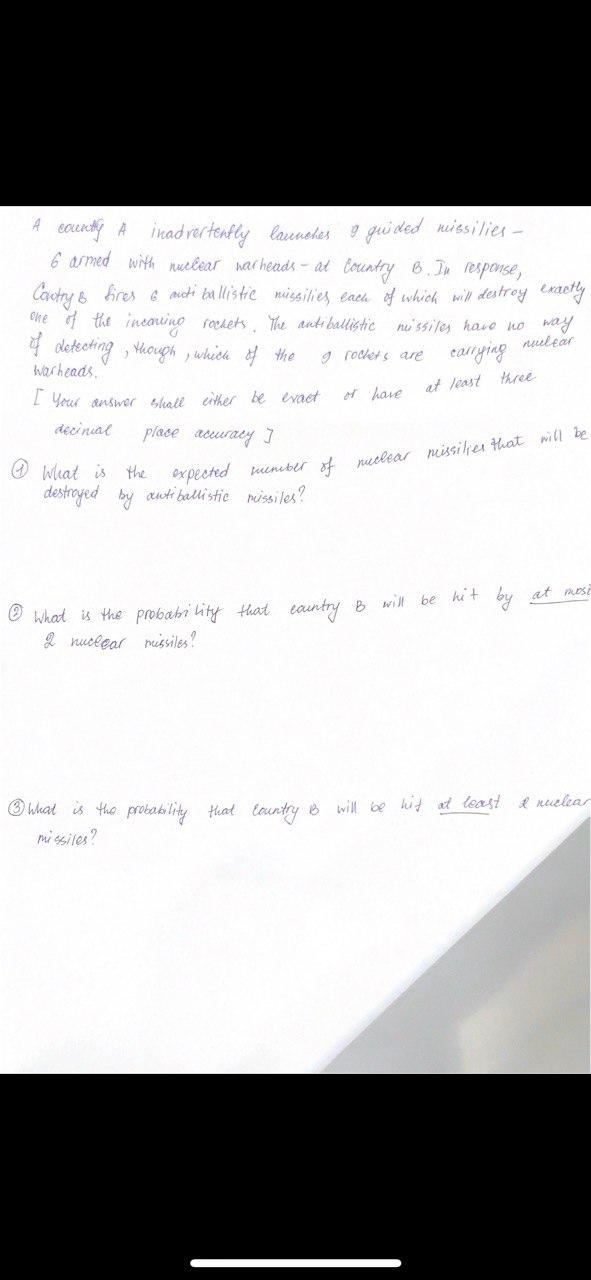 A country A inadvertently launches 9 guided missilies -
6 armed with nuclear warheads - at Country B. In response,
Contry B fires 6 anti ballistic missilies each of which will destroy exactly
one of the incoming rockets. The antiballistic missiles have no way
of detecting, though, which of the 9 rockets are carrying nuclear
warheads.
[ Your answer shall either be exact or have at least three
decimal place accuracy ]
① What is the expected number of nuclear missilies that will be
destroyed by antiballistic missiles?
② What is the probability that country B will be hit by at most
2 nuclear missiles?
③ What is the probability that Country B will be hit at least 2 nuclear
missiles?